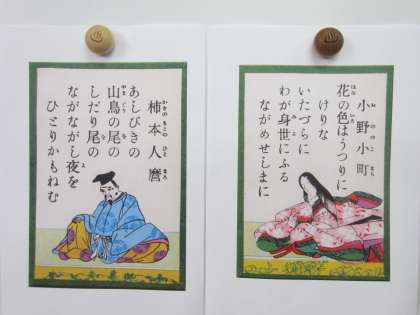 小野小町
花の色はうつりに
けりな
いたづらに
わが身世にふる
ながめせしまに
柿本人麿
あしびきの
山鳥の尾の
しだり尾の
ながながし夜を
ひとりかもねむ